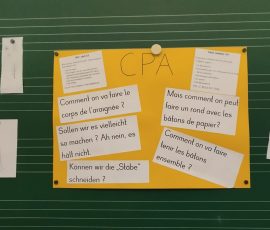 CPA
Comment on va faire le
corps de l'araignée ?
Sollen wir es vielleicht
so machen ? Ah nein, es
hält nicht.
Können wir die „Stäbe"
schneiden ?
Mais comment on peut
faire un rond avec les
bâtons de papier?
Comment on va faire
tenir les bâtons
ensemble ?